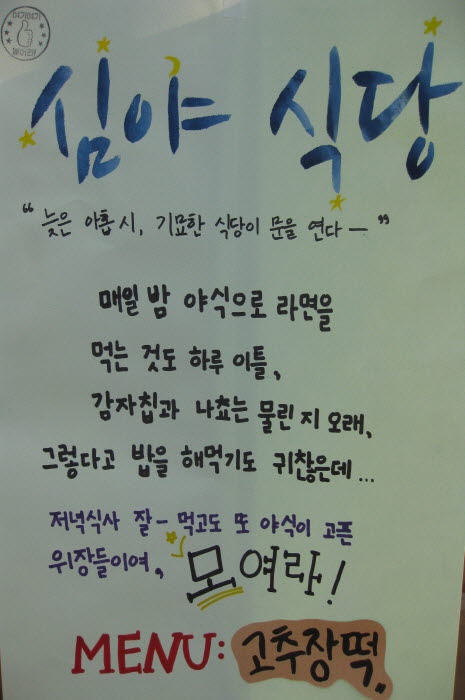 여기여기 붙어라!
심야 식당
“늦은 아홉시, 기묘한 식당이 문을 연다 —”
매일 밤 야식으로 라면을
먹는 것도 하루 이틀,
감자칩과 나쵸는 물린 지 오래,
그렇다고 밥을 해먹기도 귀찮은데...
저녁식사 잘 - 먹고도 또 야식이 고픈
위장들이여, 모여라!
MENU: 고추장떡